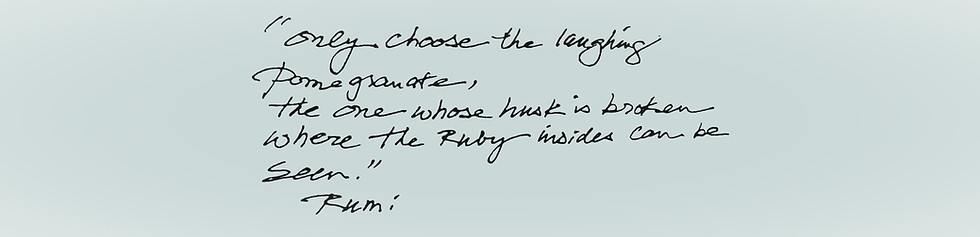 "only choose the laughing
Pomegranate,
the one whose husk is broken
where the Ruby insides can be
seen."
Rumi